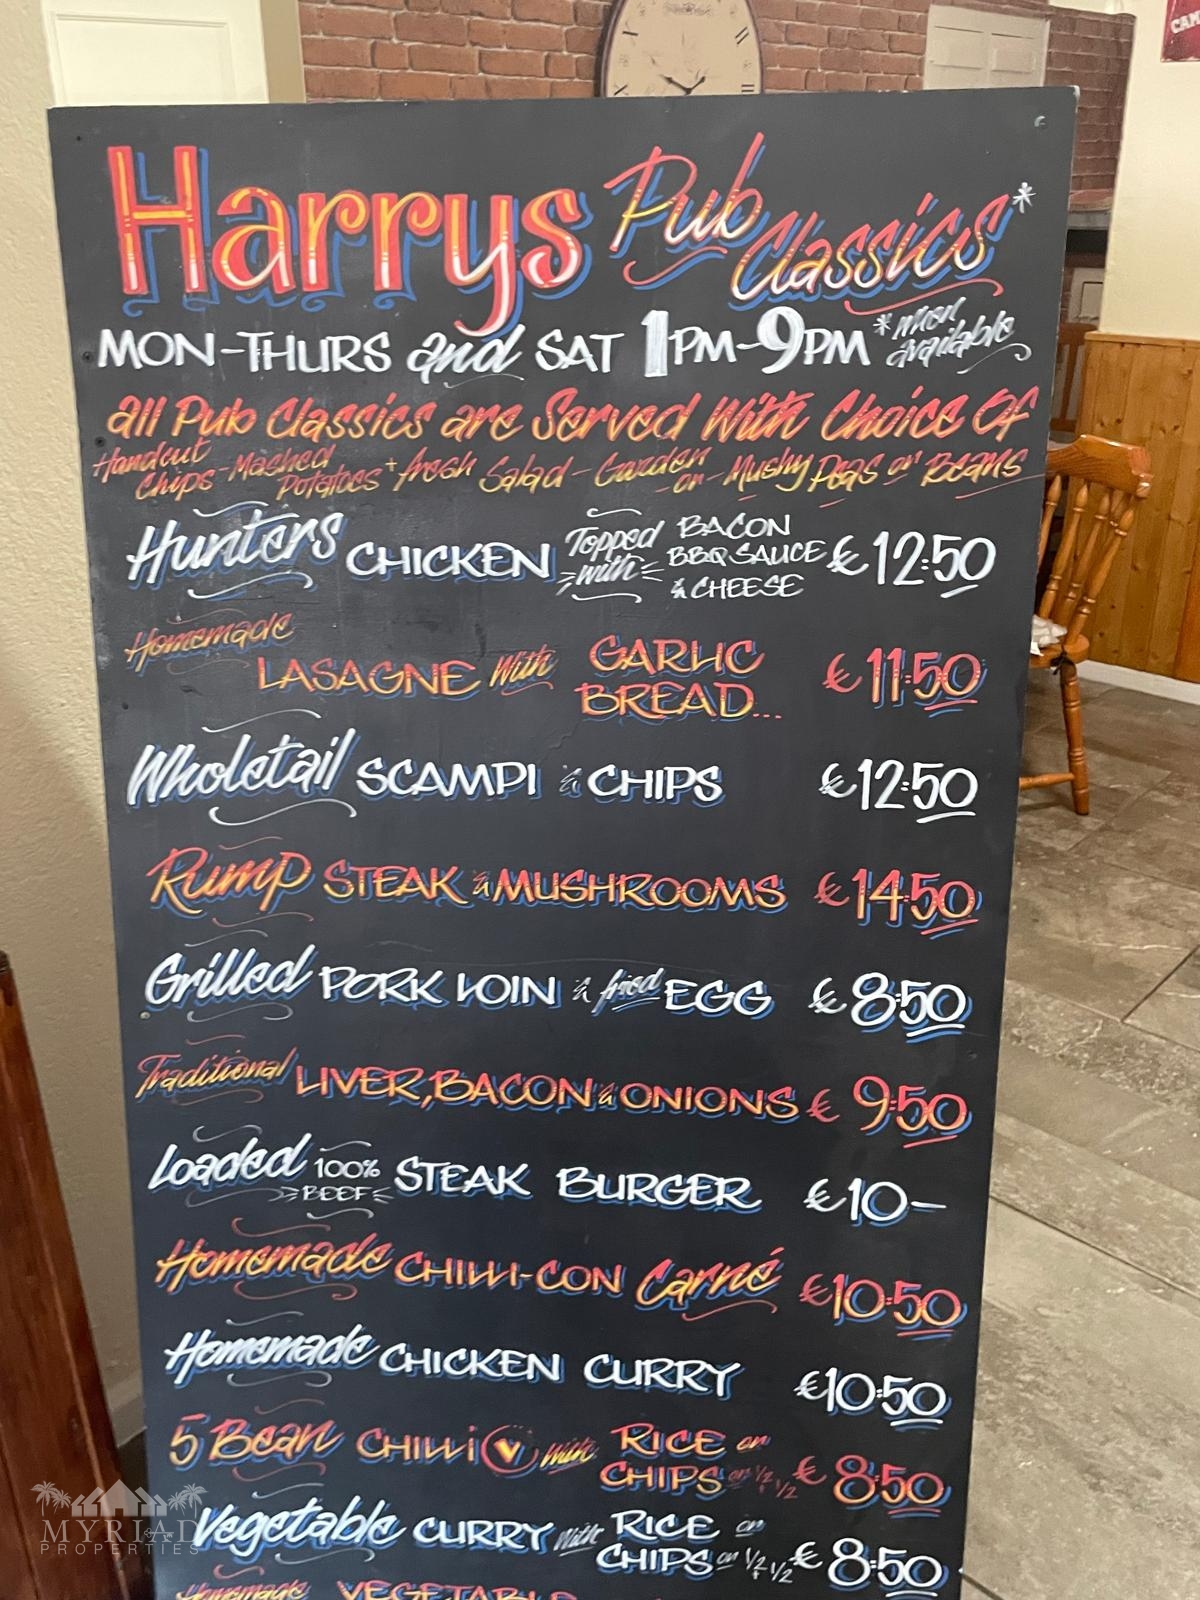 CAM
Harrys Pub Classics*
MON-THURS and SAT 1PM-9PM *when available
all Pub Classics are Served With Choice Of
Handcut Chips - Mashed Potatoes + fresh Salad - Garden -or- Mushy Peas or Beans
Hunters CHICKEN Topped with BACON BBQ SAUCE & CHEESE € 12:50
Homemade LASAGNE With GARLIC BREAD... € 11:50
Wholetail SCAMPI & CHIPS € 12:50
Rump STEAK & MUSHROOMS € 14:50
Grilled PORK LOIN & fried EGG € 8:50
Traditional LIVER, BACON & ONIONS € 9:50
Loaded 100% BEEF STEAK BURGER € 10-
Homemade CHILLI-CON Carné € 10:50
Homemade CHICKEN CURRY € 10:50
5 Bean CHILLI V With RICE or CHIPS or 1/2 1/2 € 8:50
Vegetable CURRY With RICE or CHIPS or 1/2 + 1/2 € 8:50
Homemade VEGETABLE
MYRIAD
PROPERTIES